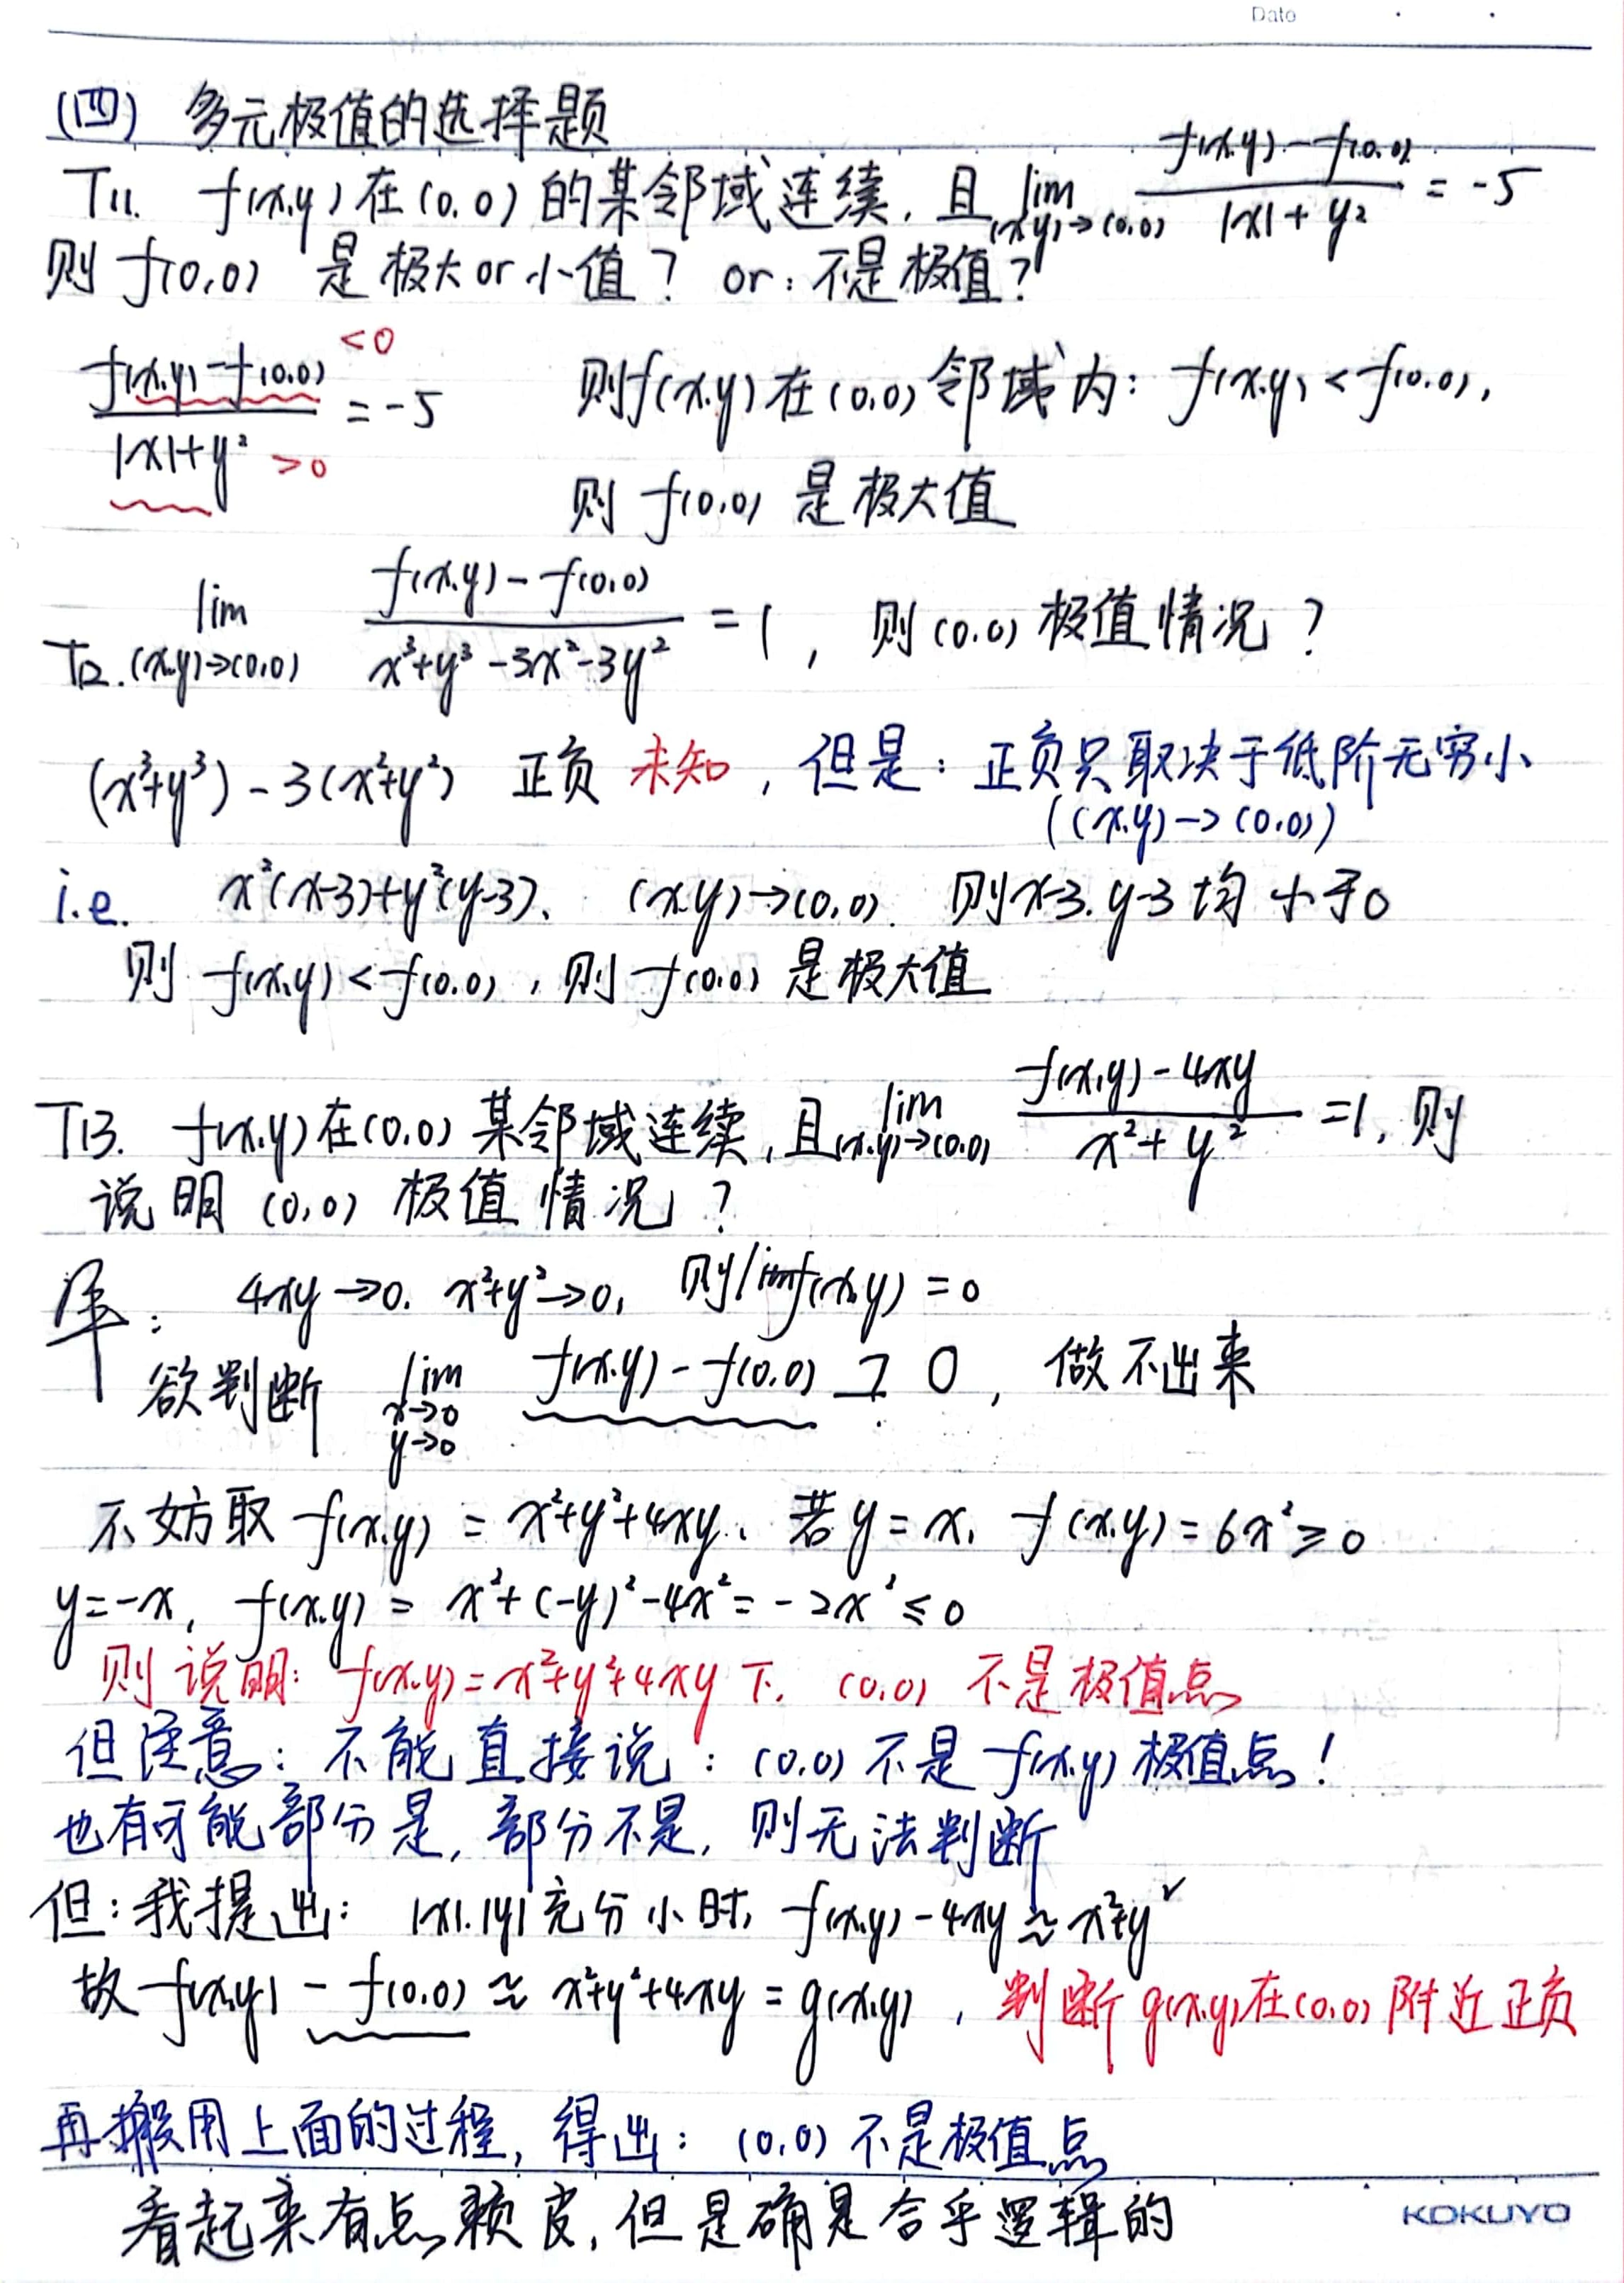 Date
(四) 多元极值的选择题
T11. f(x,y)在(0,0)的某邻域连续, 且 lim (x,y)→(0,0) f(x,y)-f(0,0) / |x|+y² = -5
则 f(0,0) 是极大or小值? or: 不是极值?
f(x,y)-f(0,0) <0 / |x|+y² >0 = -5 则f(x,y)在(0,0)邻域内: f(x,y)<f(0,0),
则 f(0,0) 是极大值
T12. lim (x,y)→(0,0) f(x,y)-f(0,0) / x³+y³-3x²-3y² = 1, 则(0,0)极值情况?
(x³+y³)-3(x²+y²) 正负 未知, 但是: 正负只取决于低阶无穷小
((x,y)→(0,0))
i.e. x²(x-3)+y²(y-3). (x,y)→(0,0). 则x-3. y-3均小于0
则 f(x,y)<f(0,0), 则 f(0,0) 是极大值
T13. f(x,y)在(0,0)某邻域连续, 且 lim (x,y)→(0,0) f(x,y)-4xy / x²+y² =1, 则
说明 (0,0) 极值情况?
: 4xy→0. x²+y²→0, 则limf(x,y)=0
欲判断 lim x→0 y→0 f(x,y)-f(0,0) 0, 做不出来
不妨取 f(x,y) = x²+y²+4xy. 若y=x, f(x,y)=6x²≥0
y=-x, f(x,y) = x²+(-y)²-4x²=-2x²≤0
则说明: f(x,y)=x²+y²+4xy下, (0,0) 不是极值点
但注意: 不能直接说: (0,0)不是f(x,y)极值点!
也有可能部分是, 部分不是, 则无法判断
但: 我提出: |x|.|y|充分小时, f(x,y)-4xy≈x²+y²
故 f(x,y)-f(0,0)≈x²+y²+4xy=g(x,y), 判断g(x,y)在(0,0)附近正负
再搬用上面的过程, 得出: (0,0)不是极值点
看起来有点赖皮, 但是确是合乎逻辑的
KOKUYO